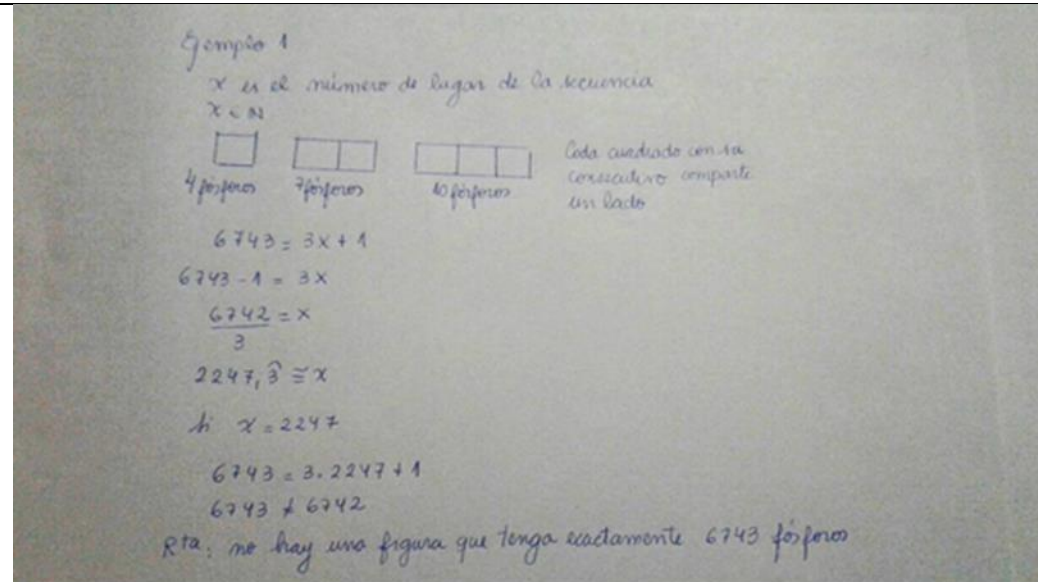 Ejemplo 1
x es el número de lugar de la secuencia
x ∈ N
4 fósforos 7 fósforos 10 fósforos
Cada cuadrado con su
consecutivo comparte
un lado
6743 = 3x + 1
6743 - 1 = 3x
6742/3 = x
2247,3̂ ≅ x
Si x = 2247
6743 = 3.2247 + 1
6743 ≠ 6742
Rta: no hay una figura que tenga exactamente 6743 fósforos